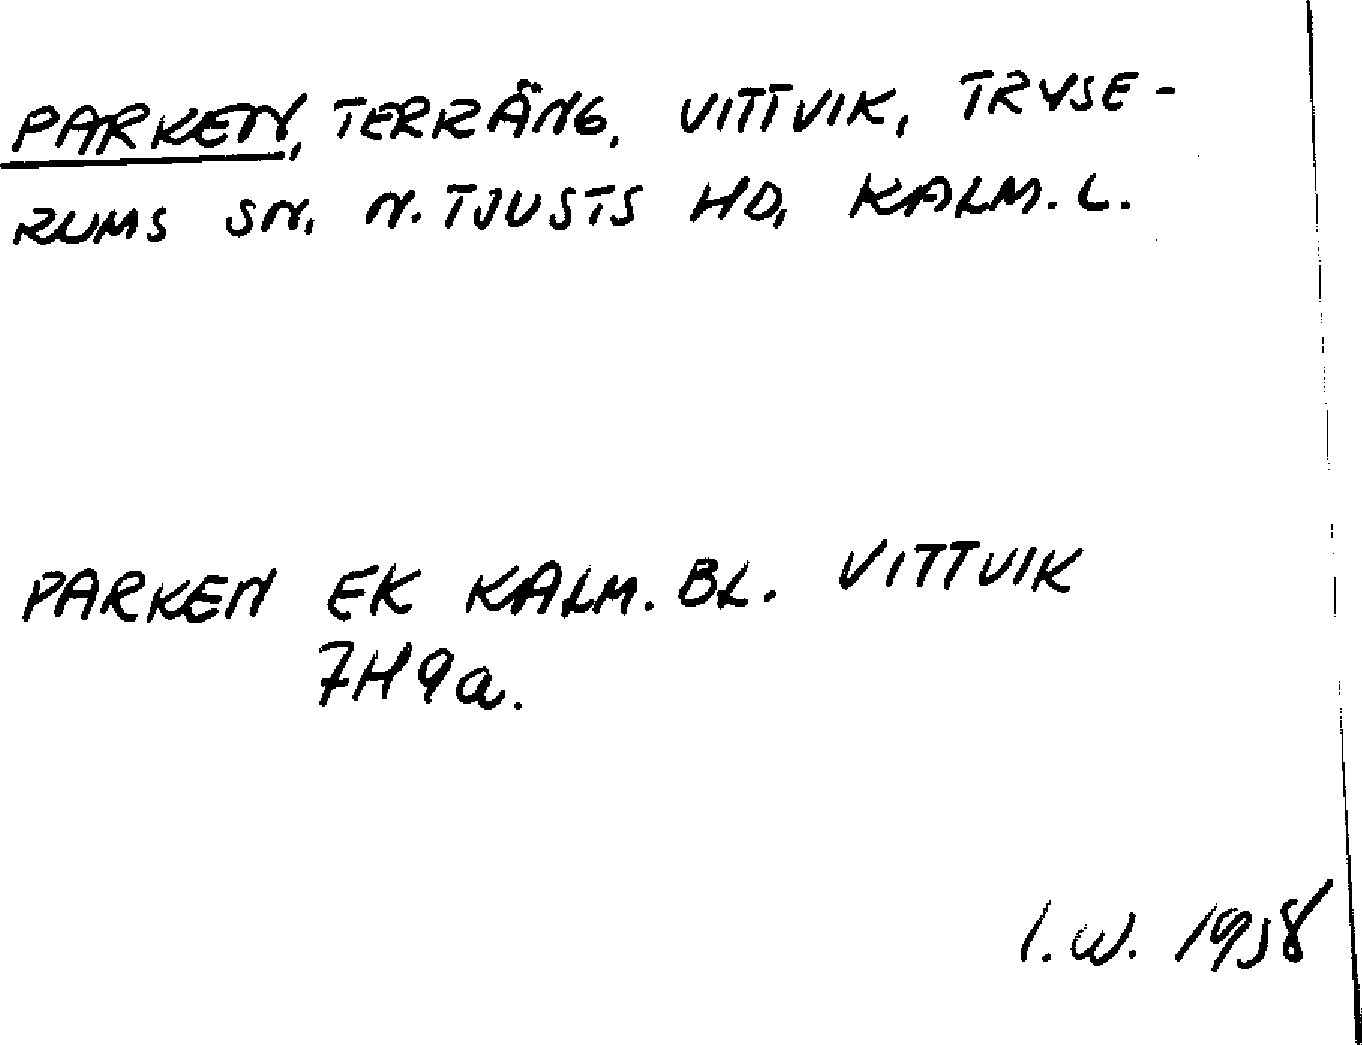 PARKEN, TERRÄNG, VITTVIK, TRYSE-
RUMS SN, N. TJUSTS HD, KALM. L.
PARKEN EK KALM. BL. VITTVIK
7H9a.
I.W. 1958